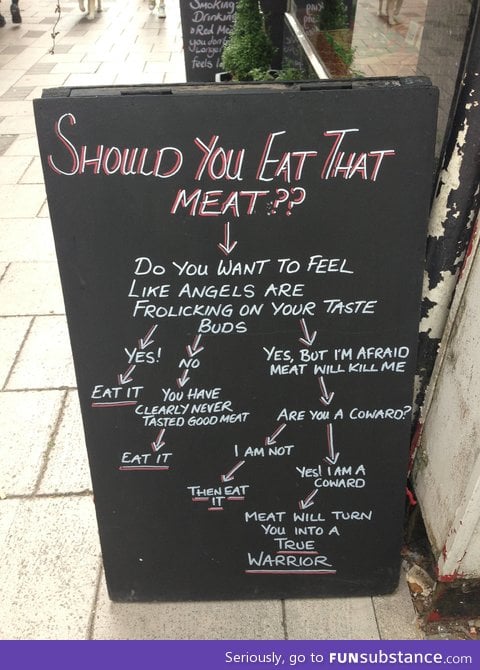 Smoking
Drinking
Red Me
you don
Longer
feels l
SHOULD YOU EAT THAT
MEAT??
DO YOU WANT TO FEEL
LIKE ANGELS ARE
FROLICKING ON YOUR TASTE
BUDS
YES!
NO
YES, BUT I'M AFRAID
MEAT WILL KILL ME
EAT IT
YOU HAVE
CLEARLY NEVER
TASTED GOOD MEAT
ARE YOU A COWARD?
EAT IT
I AM NOT
YES! I AM A
COWARD
THEN EAT
IT
MEAT WILL TURN
YOU INTO A
TRUE
WARRIOR
Seriously, go to FUNsubstance.com